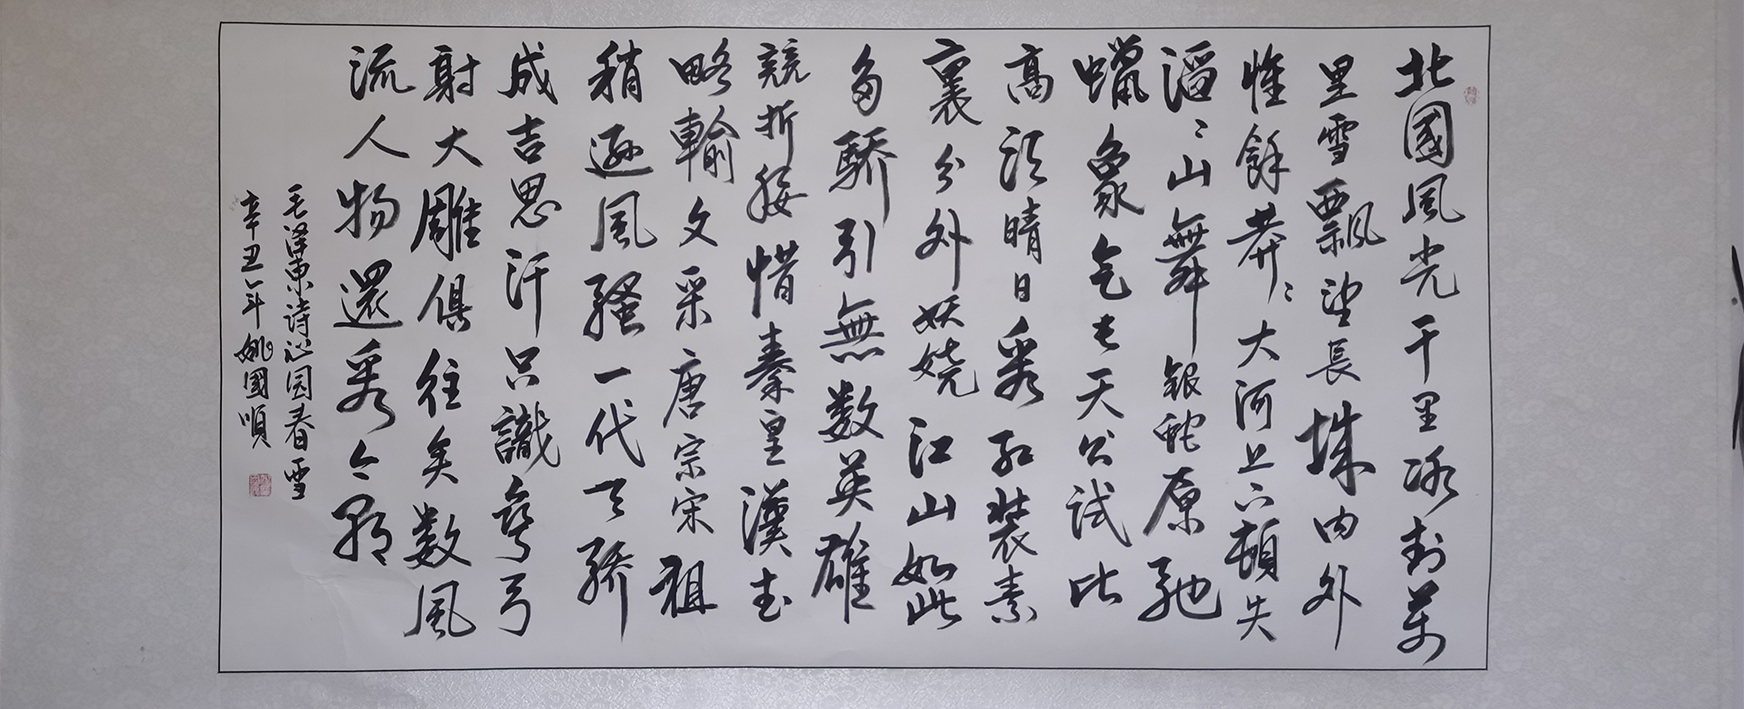 北國風光千里冰封萬
里雪飄望長城内外
惟餘莽々大河上下頓失
滔々山舞銀蛇原馳
蠟象欲与天公試比
高須晴日看紅装素
裹分外妖娆江山如此
多驕引無数英雄
競折腰惜秦皇漢武
略輸文采唐宗宋祖
稍遜風騷一代天骄
成吉思汗只識彎弓
射大雕俱往矣数風
流人物還看今朝
毛澤東诗沁园春雪
辛丑年姚國順